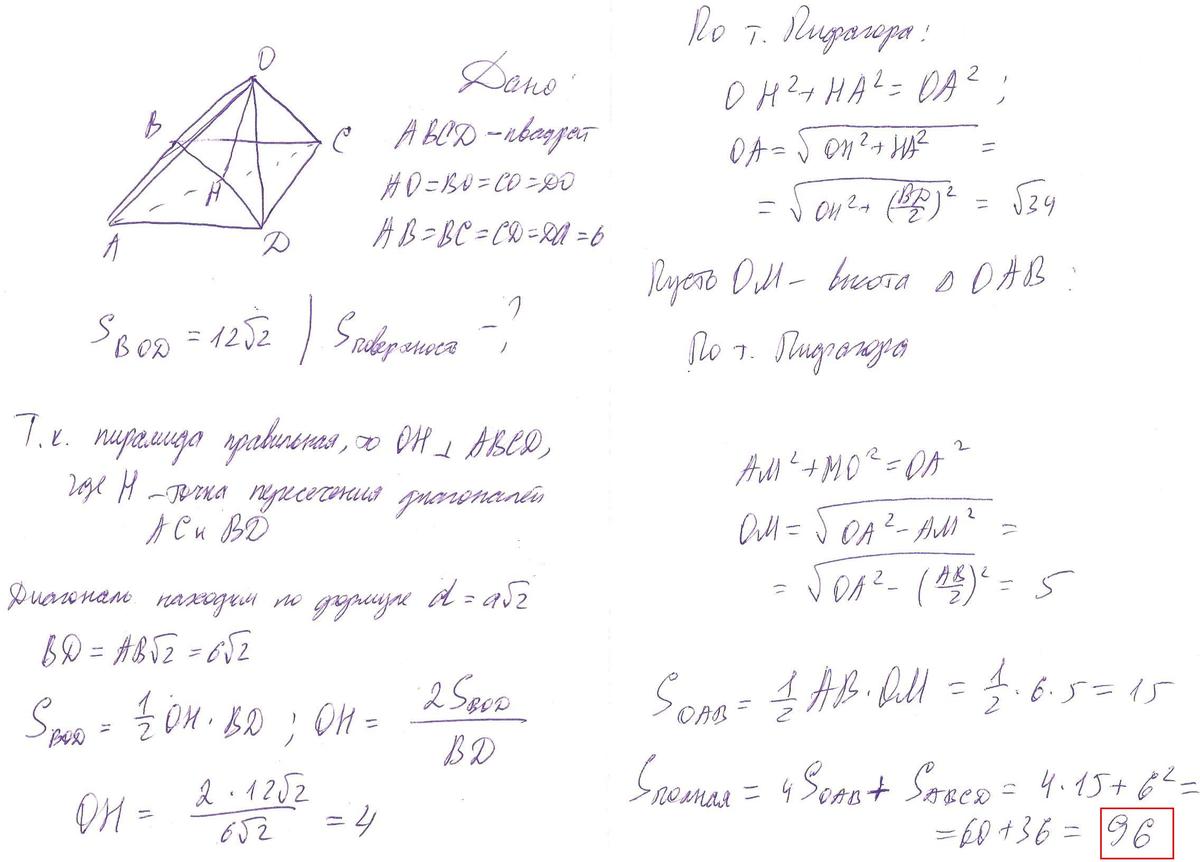 O
B
C
H
A
D
Дано:
ABCD – квадрат
AO = BO = CO = DO
AB = BC = CD = DA = 6
S_BOD = 12√2 | S поверхность – ?
Т.к. пирамида правильная, то OH ⊥ ABCD,
где H – точка пересечения диагоналей
AC и BD
Диагональ находим по формуле d = a√2
BD = AB√2 = 6√2
S_BOD = 1/2 OH · BD ; OH = 2S_BOD / BD
OH = 2 · 12√2 / 6√2 = 4
По т. Пифагора:
OH² + HA² = OA² ;
OA = √(OH² + HA²) =
= √(OH² + (BD/2)²) = √34
Пусть OM – высота Δ OAB :
По т. Пифагора
AM² + MO² = OA²
OM = √(OA² – AM²) =
= √(OA² – (AB/2)²) = 5
S_OAB = 1/2 AB · OM = 1/2 · 6 · 5 = 15
S полная = 4S_OAB + S_ABCD = 4 · 15 + 6² =
= 60 + 36 = 96